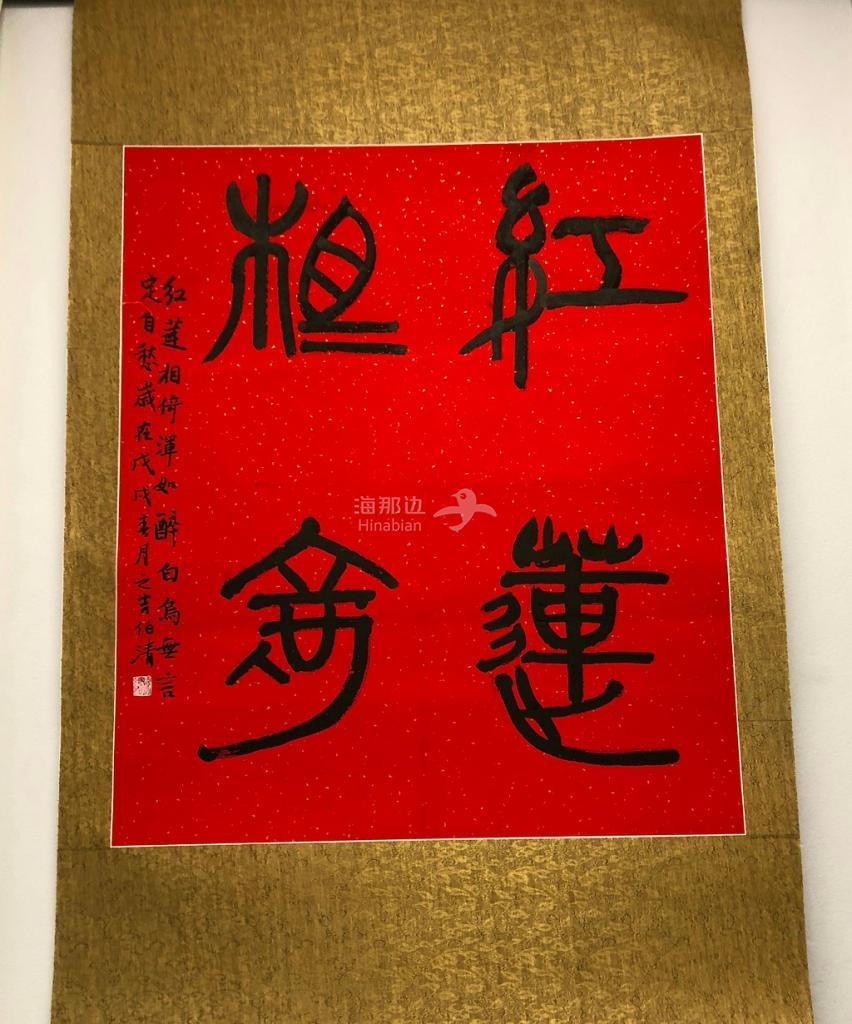 紅蓮
相倚
红莲相倚渾如醉白鳥無言
定自愁歲在戊戌春月之吉伯清
海那边
Hinabian